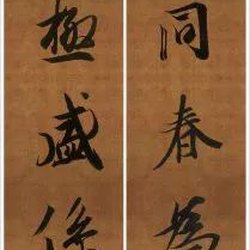 同春為
極盛係